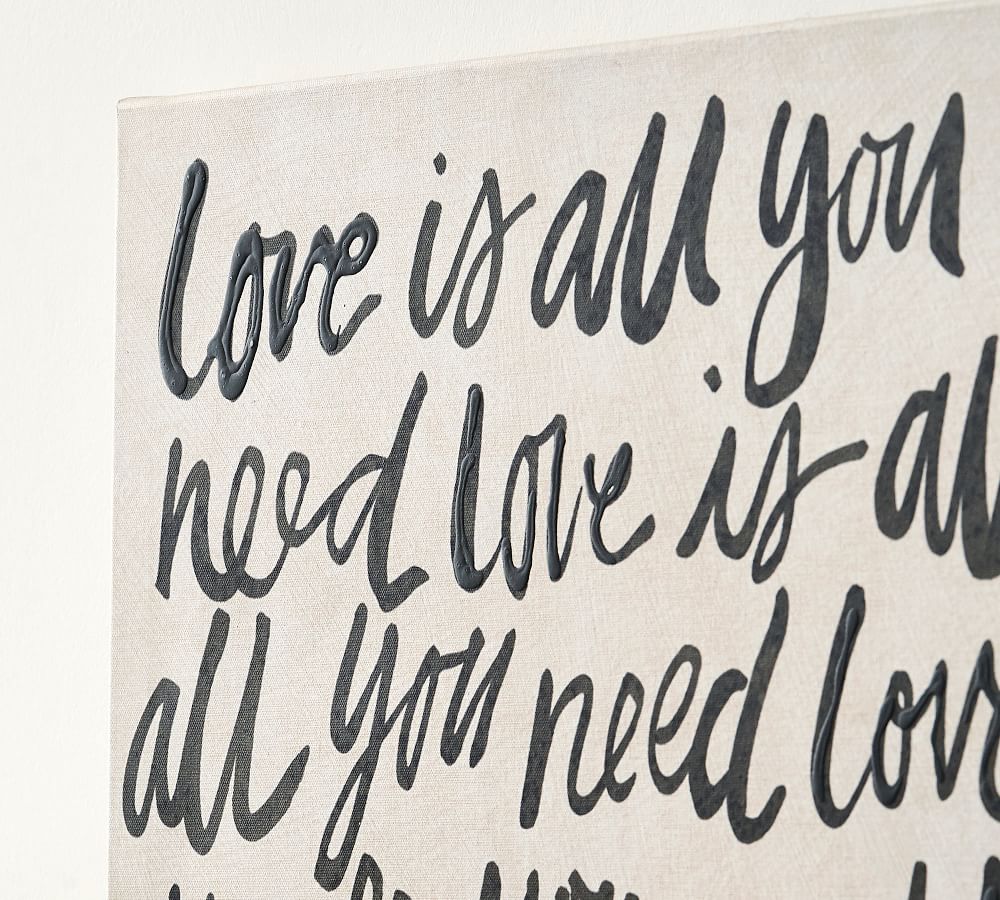 love is all you
need love is
all you need